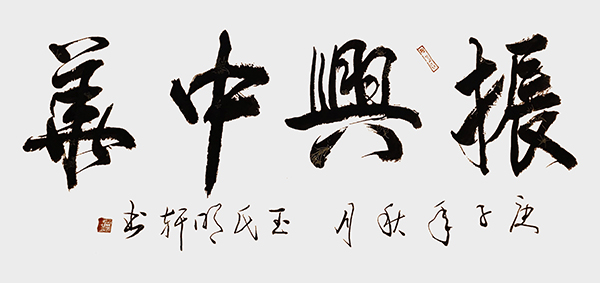 振興中華
庚子年秋月 玉氏明轩书